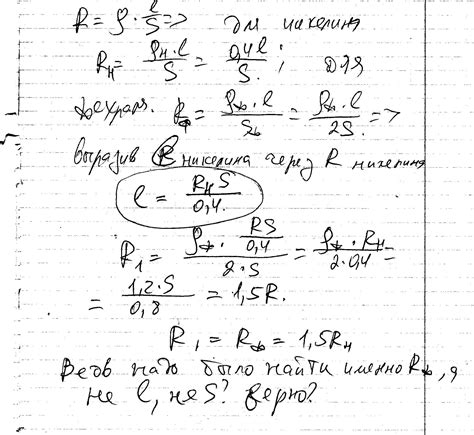 R = ρ · l/S => для никелина
Rн = ρн · l/S = 0,4l/S ; для
фехрал. Rф = ρф · l/Sф = ρф · l/2S =>
выразив l никелина через R никелина
l = RнS/0,4.
R1 = ρф · RS/0,4/2·S = ρф · Rн/2·0,4 =
= 1,2·S/0,8 = 1,5R.
R1 = Rф = 1,5Rн
Ведь надо было найти именно Rф, а
не l, не S? верно?